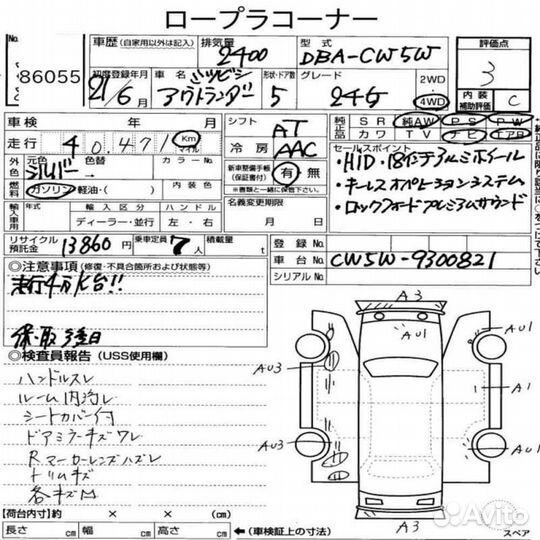 ロープラコーナー
No. 86055
車歴 (自家用以外は記入) 排気量 2400 型式 DBA-CW5W 評価点 3
初度登録年月 21/6月 車名 ミツビシ アウトランダー 形状・ドア数 5 グレード 24G 2WD 4WD 内装補助評価 C
車検 年 月 シフト AT 純正品 SR 純AW PS PW
走行 40,471 Km マイル 冷房 AAC カワ TV ナビ エアB
外装色 元色 シルバー 色替 カラーNo. 新車整備手帳(保証書付) 有 無 セールスポイント
※記録簿のみの場合は注意事項欄に記入してください
・HID・18インチアルミホイール
燃料 ガソリン 軽油・( ) 内装色 名義変更期限 月 日
・キーレスオペレーションシステム
輸入車用 年式 輸入区分 ディーラー・並行 ハンドル 左・右
・ロックフォードプレミアムサウンド
リサイクル預託金 13860円 乗車定員 7人 積載量 t
登録No.
車台No. CW5W-9300821
シリアルNo.
◎注意事項(修復・不具合箇所および状態等)
走行4万K台!!
保・取後日
◎検査員報告(USS使用欄)
ハンドルスレ
ルーム内汚レ
シートカバー付
ドアミラーキズワレ
Rマーカーレンズハズレ
トリムキズ
各キズ凹
A3
AU1
AU1
AU3
A1
AU3
AU2
A3
【荷台内寸】 × × (cm)
長さ cm 幅 cm 高さ cm ←(車検証上の寸法)
スペア
Avito